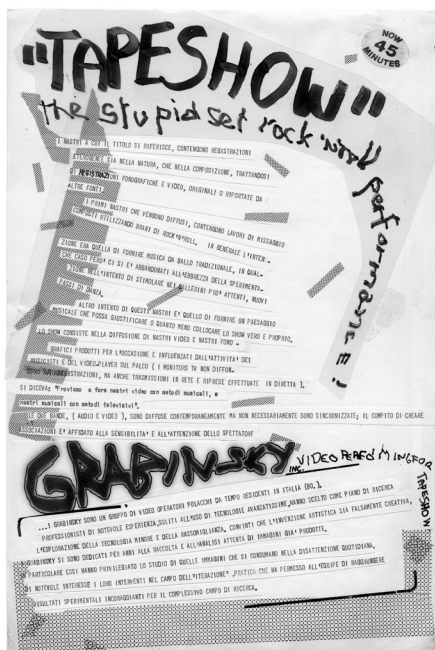 NOW
45
MINUTES
"TAPESHOW"
the stupid set rock'n'roll performance!
I NASTRI A CUI IL TITOLO SI RIFERISCE, CONTENGONO REGISTRAZIONI
SIA NELLA NATURA, CHE NELLA COMPOSIZIONE, TRATTANDOSI
DI REGISTRAZIONI FONOGRAFICHE E VIDEO, ORIGINALI O RIPORTATE DA
ALTRE FONTI.
I PRIMI NASTRI CHE VENGONO DIFFUSI, CONTENGONO LAVORI DI MISSAGGIO
COMPOSTI UTILIZZANDO BRANI DI ROCK'N'ROLL. IN GENERALE L'INTEN-
ZIONE ERA QUELLA DI FORNIRE MUSICA DA BALLO TRADIZIONALE, IN QUAL-
CHE CASO PERO' CI SI E' ABBANDONATI ALL'EBBREZZA DELLA SPERIMENTA-
ZIONE NELL'INTENTO DI STIMOLARE NEI BALLERINI PIU' ATTENTI, NUOVI
PASSI DI DANZA.
ALTRO INTENTO DI QUESTI NASTRI E' QUELLO DI FORNIRE UN PAESAGGIO
MUSICALE CHE POSSA GIUSTIFICARE O QUANTO MENO COLLOCARE LO SHOW VERO E PROPRIO.
LO SHOW CONSISTE NELLA DIFFUSIONE DI NASTRI VIDEO E NASTRI FONO -
GRAFICI PRODOTTI PER L'OCCASIONE E INFLUENZATI DALL'ATTIVITA' DEI
MUSICISTI E DEL VIDEO-PLAYER SUL PALCO ( I MONITORS TV NON DIFFON-
REGISTRAZIONI, MA ANCHE TRASMISSIONI IN RETE E RIPRESE EFFETTUATE IN DIRETTA ).
SI DICEVA: "Proviamo a fare nastri video con metodi musicali, e
nastri musicali con metodi televisivi".
LE DUE BANDE, ( AUDIO E VIDEO ), SONO DIFFUSE CONTEMPORANEAMENTE MA NON NECESSARIAMENTE SONO SINCRONIZZATE; IL COMPITO DI CREARE
ASSOCIAZIONI E' AFFIDATO ALLA SENSIBILITA' E ALL'ATTENZIONE DELLO SPETTATORE
GRABINSKY INC. VIDEO PERFORMING FOR TAPESHOW
...I GRABINSKY SONO UN GRUPPO DI VIDEO OPERATORI POLACCHI DA TEMPO RESIDENTI IN ITALIA (BO.).
PROFESSIONISTI DI NOTEVOLE ESPERIENZA, SOLITI ALL'USO DI TECNOLOGIE AVANZATISSIME, HANNO SCELTO COME PIANO DI RICERCA
L'ESPLORAZIONE DELLA TECNOLOGIA MINORE E DELLA RASSOMIGLIANZA. CONVINTI CHE L'INVENZIONE ARTISTICA SIA FALSAMENTE CREATIVA,
GRABINSKY SI SONO DEDICATI PER ANNI ALLA RACCOLTA E ALL'ANALISI ATTENTA DI IMMAGINI GIA' PRODOTTE.
PARTICOLARE ESSI HANNO PRIVILEGIATO LO STUDIO DI QUELLE IMMAGINI CHE SI CONSUMANO NELLA DISATTENZIONE QUOTIDIANA.
DI NOTEVOLE INTERESSE I LORO INTERVENTI NEL CAMPO DELL'"ITERAZIONE", PRATICA CHE HA PERMESSO ALL'EQUIPE DI RAGGIUNGERE
RISULTATI SPERIMENTALI INCORAGGIANTI PER IL COMPLESSIVO CAMPO DI RICERCA.